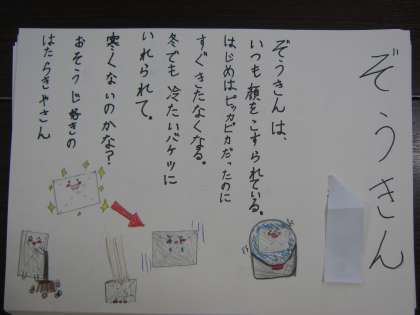 ぞうきん
ぞうきんは、
いつも顔をこすられている。
はじめはピッカピカだったのに
すぐきたなくなる。
冬でも冷たいバケツに
いれられて。
寒くないのかな？
おそうじ好きの
はたらきやさん